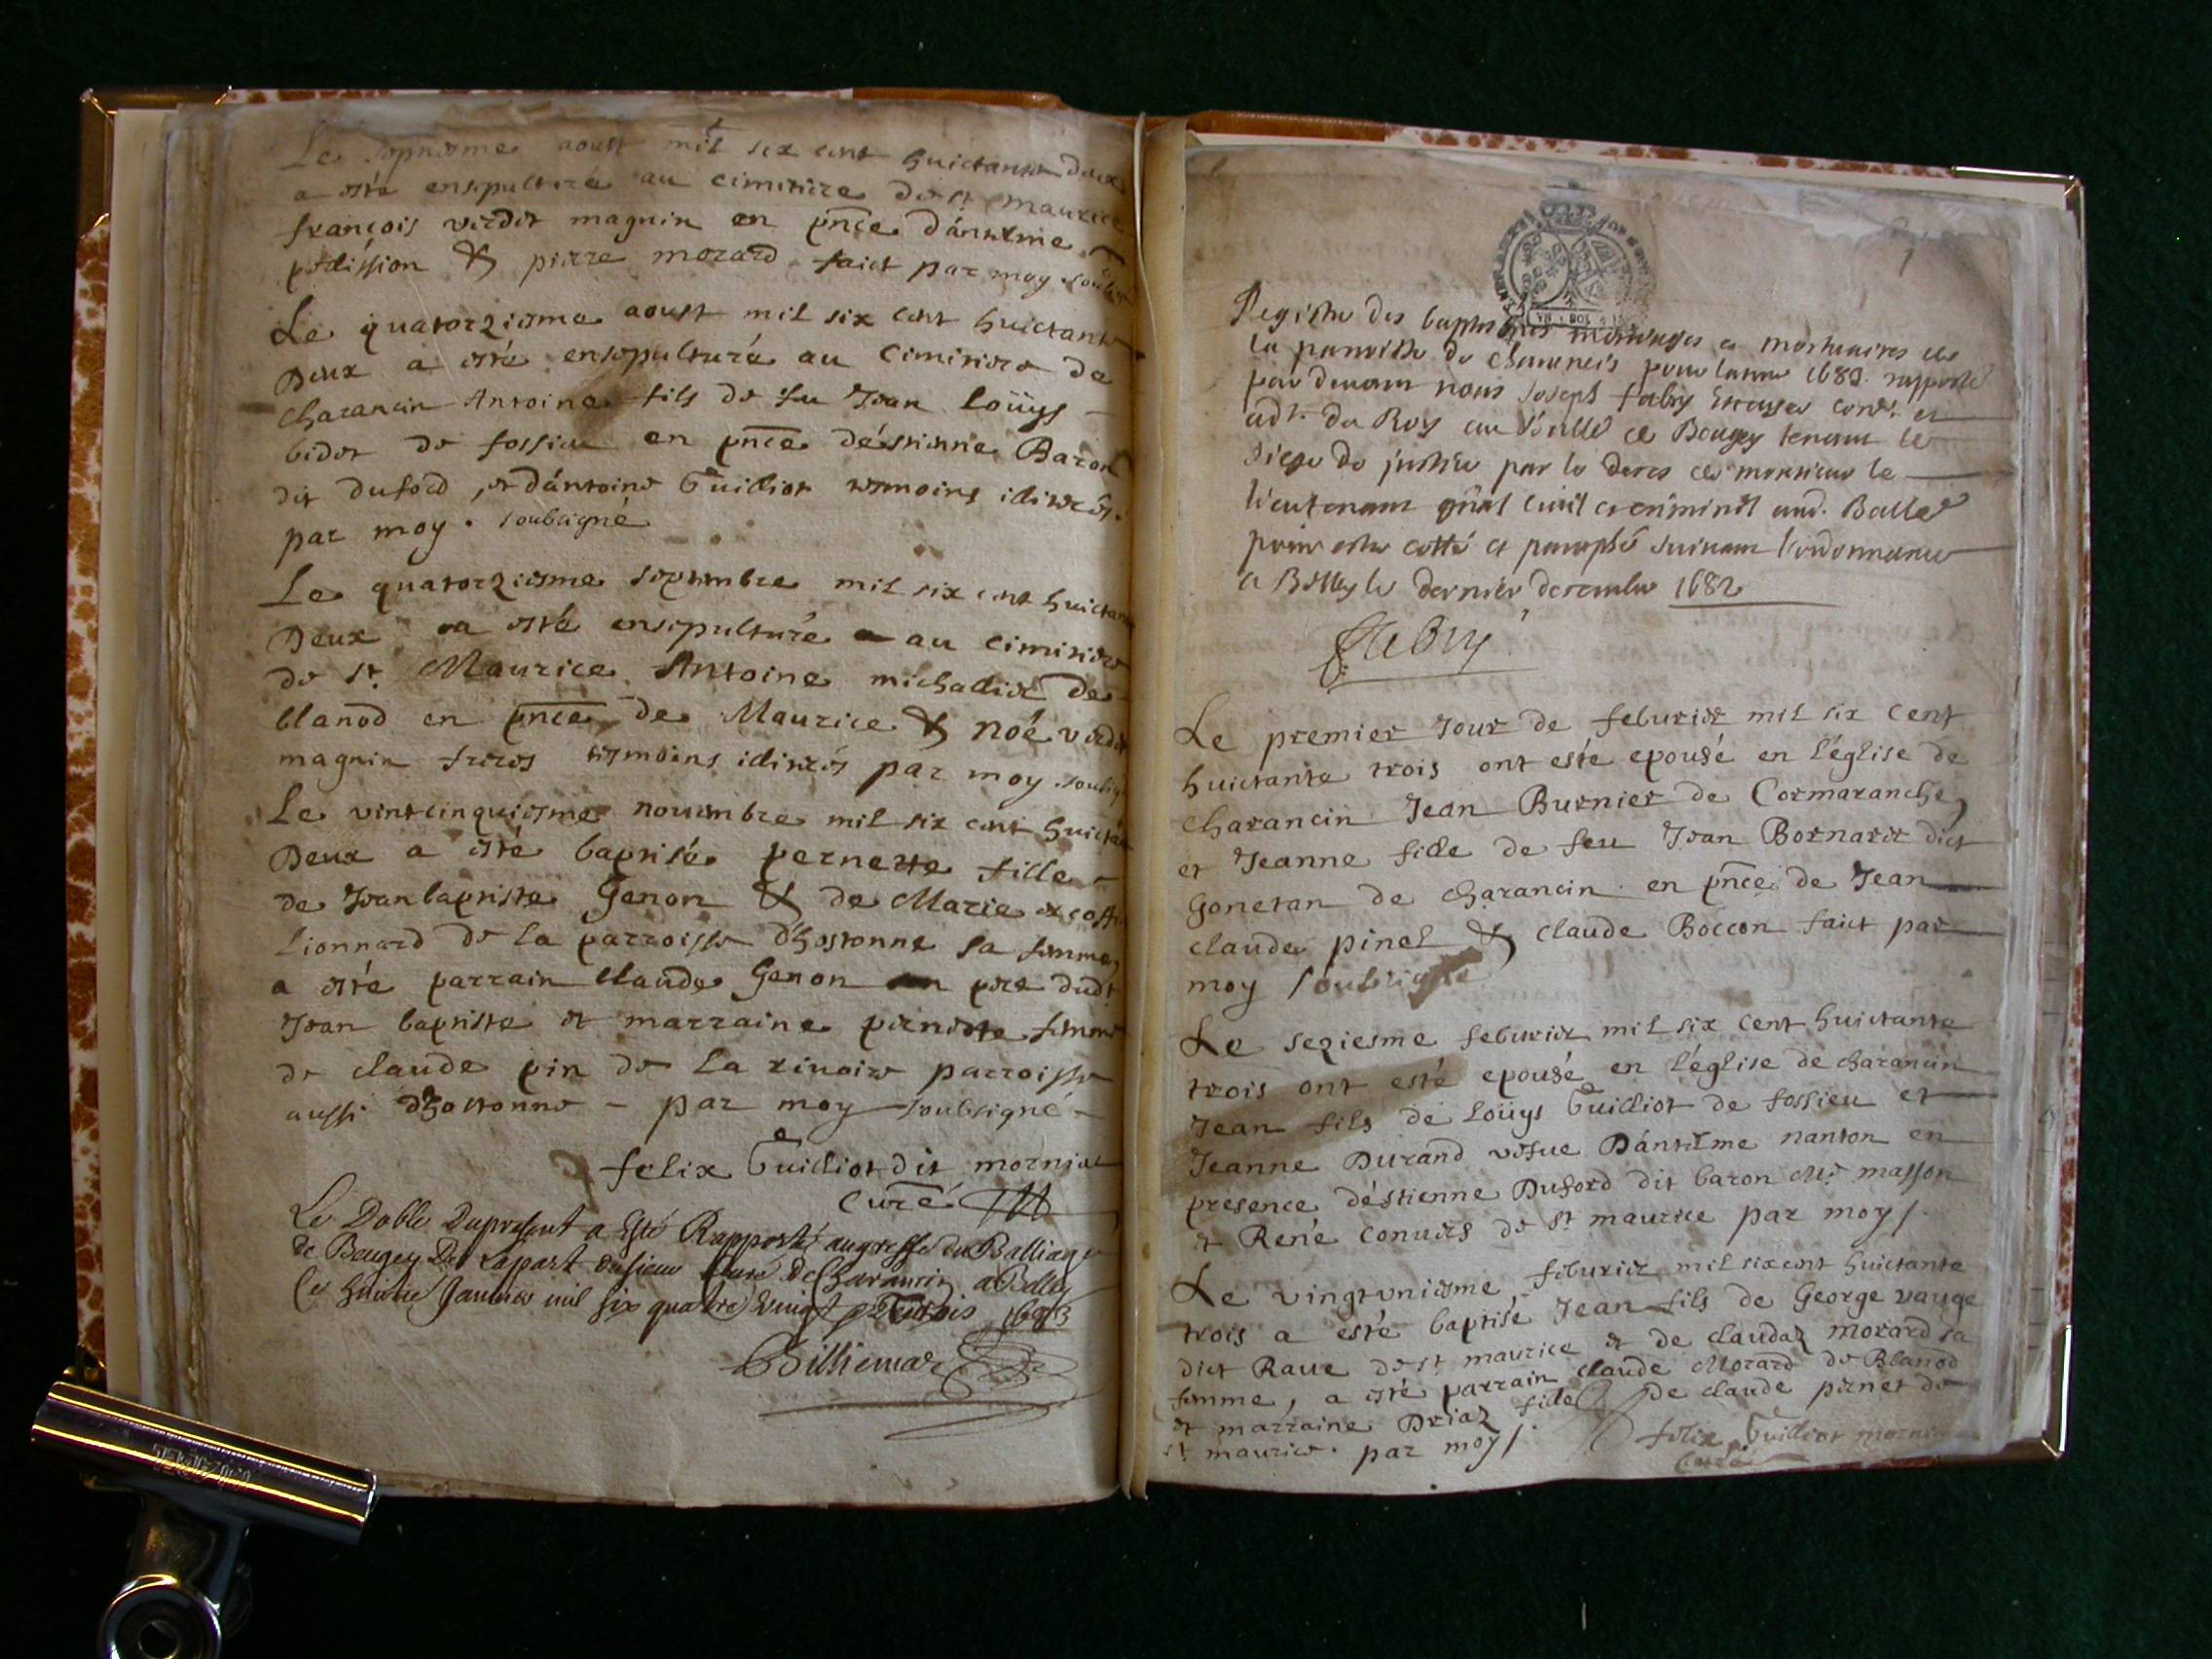 Le septiesme aoust mil six cent huictante deux
a esté ensepulturé au cimitiere de st maurice
françois verdet magnin en pnce d'antelme
pelission & pierre morard faict par moy
Le quatorziesme aoust mil six cent huictante
Deux a esté ensepulturé au Cimitiere de
Charancin Antoine fils de fu Jean loüys
bidet de fossieu en pnce d'éstienne Baron
dit duford, et d'antoine Guilliot temoins ilitrés.
par moy. soubsigné
Le quatorziesme septembre mil six cent huictante
Deux a esté ensepulturé au cimitiere
de st. Maurice Antoine michallet de
blanod en pnce de Maurice & noé verdet
magnin freres tesmoins ilitrés par moy soubsigné
Le vintcinquiesme nouembre mil six cent huictante
Deux a esté baptisée pernette fille
de Jean baptiste Genon & de Marie
Lionnard de la parroisse d'hostonne sa femme,
a esté parrain Claude Genon pere dudt
Jean baptiste et marraine pernette femme
de claude pin de la riuoire parroisse
aussi d'hostonne - par moy soubsigné -
felix Guilliot dit morniat
curé
Le Doble Dupresent a Esté Rapporté au greffe du Balliage
de Beugey De Lapart dusieur Curé De Charancin a Belley
Le huictie Januier mil six quatre vingt Trois 1683
Billiemaz
1
Registre des baptesmes mariages et mortuaires de
la parroisse de charancin pour lannee 1683. rapporté
par deuant nous Joseph fabry Escuyer conr. et
adt. du Roy au Baille de Beugey tenant le
siege de justice par le deces de monsieur le
lieutenant gnal ciuil et criminel aud. Balle
pour estre cotté et paraphé suiuant l'ordonnance
a Belley le dernier decembre 1682
ffabry
Le premier Jour de feburier mil six cent
huictante trois ont esté epousé en l'église de
charancin Jean Burnier de Cormaranche,
et Jeanne fille de feu Jean Bornard dict
Gonetan de charancin en pnce de Jean
claude pinel & claude Boccon faict par
moy soubsigné
Le seziesme feburier mil six cent huictante
trois ont esté epousé en l'église de charancin
Jean fils de loüys Guilliot de fossieu et
Jeanne Durand vefue D'antelme nanton en
presence d'éstienne Duford dit baron me masson
et René conuers de st maurice par moy /.
Le vingtuniesme feburier mil six cent huictante
trois a esté baptisé Jean fils de George vauge
dict Raue de st maurice et de claudaz morard sa
femme, a esté parrain claude Morard de Blanod
et marraine Driaz fille de claude pernet de
st maurice. par moy /.
felix Guilliot morniat
curé